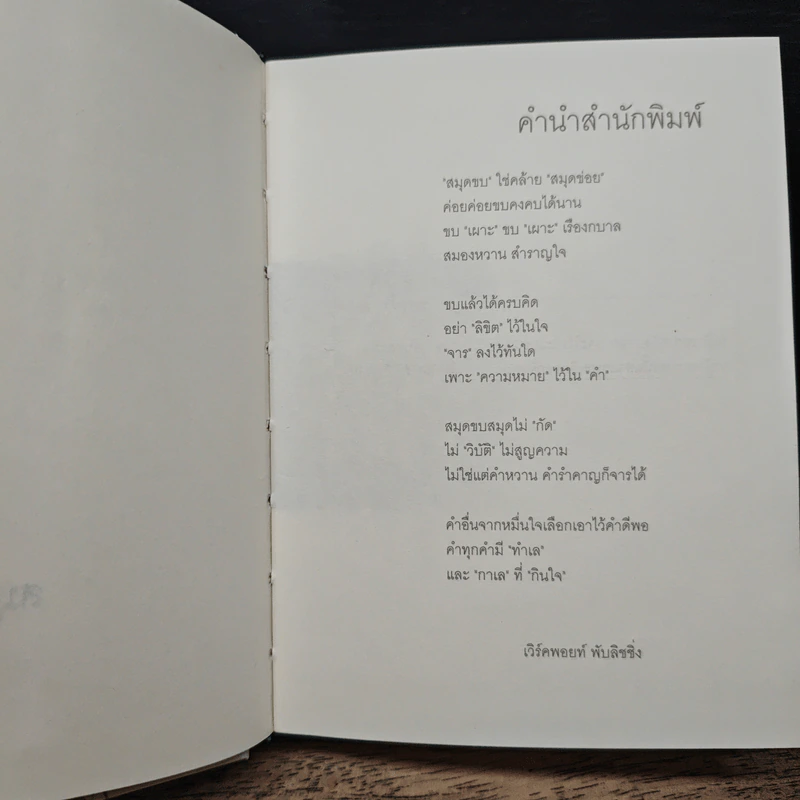 คำนำสำนักพิมพ์
"สมุดขบ" ใช่คล้าย "สมุดข่อย"
ค่อยค่อยขบคงคบได้นาน
ขบ "เผาะ" ขบ "เผาะ" เรืองกบาล
สมองหวาน สำราญใจ
ขบแล้วได้ครบคิด
อย่า "ลิขิต" ไว้ในใจ
"จาร" ลงไว้ทันใด
เพาะ "ความหมาย" ไว้ใน "คำ"
สมุดขบสมุดไม่ "กัด"
ไม่ "วิบัติ" ไม่สูญความ
ไม่ใช่แต่คำหวาน คำรำคาญก็จารได้
คำอื่นจากหมื่นใจเลือกเอาไว้คำดีพอ
คำทุกคำมี "ทำเล"
และ "กาเล" ที่ "กินใจ"
เวิร์คพอยท์ พับลิชชิ่ง